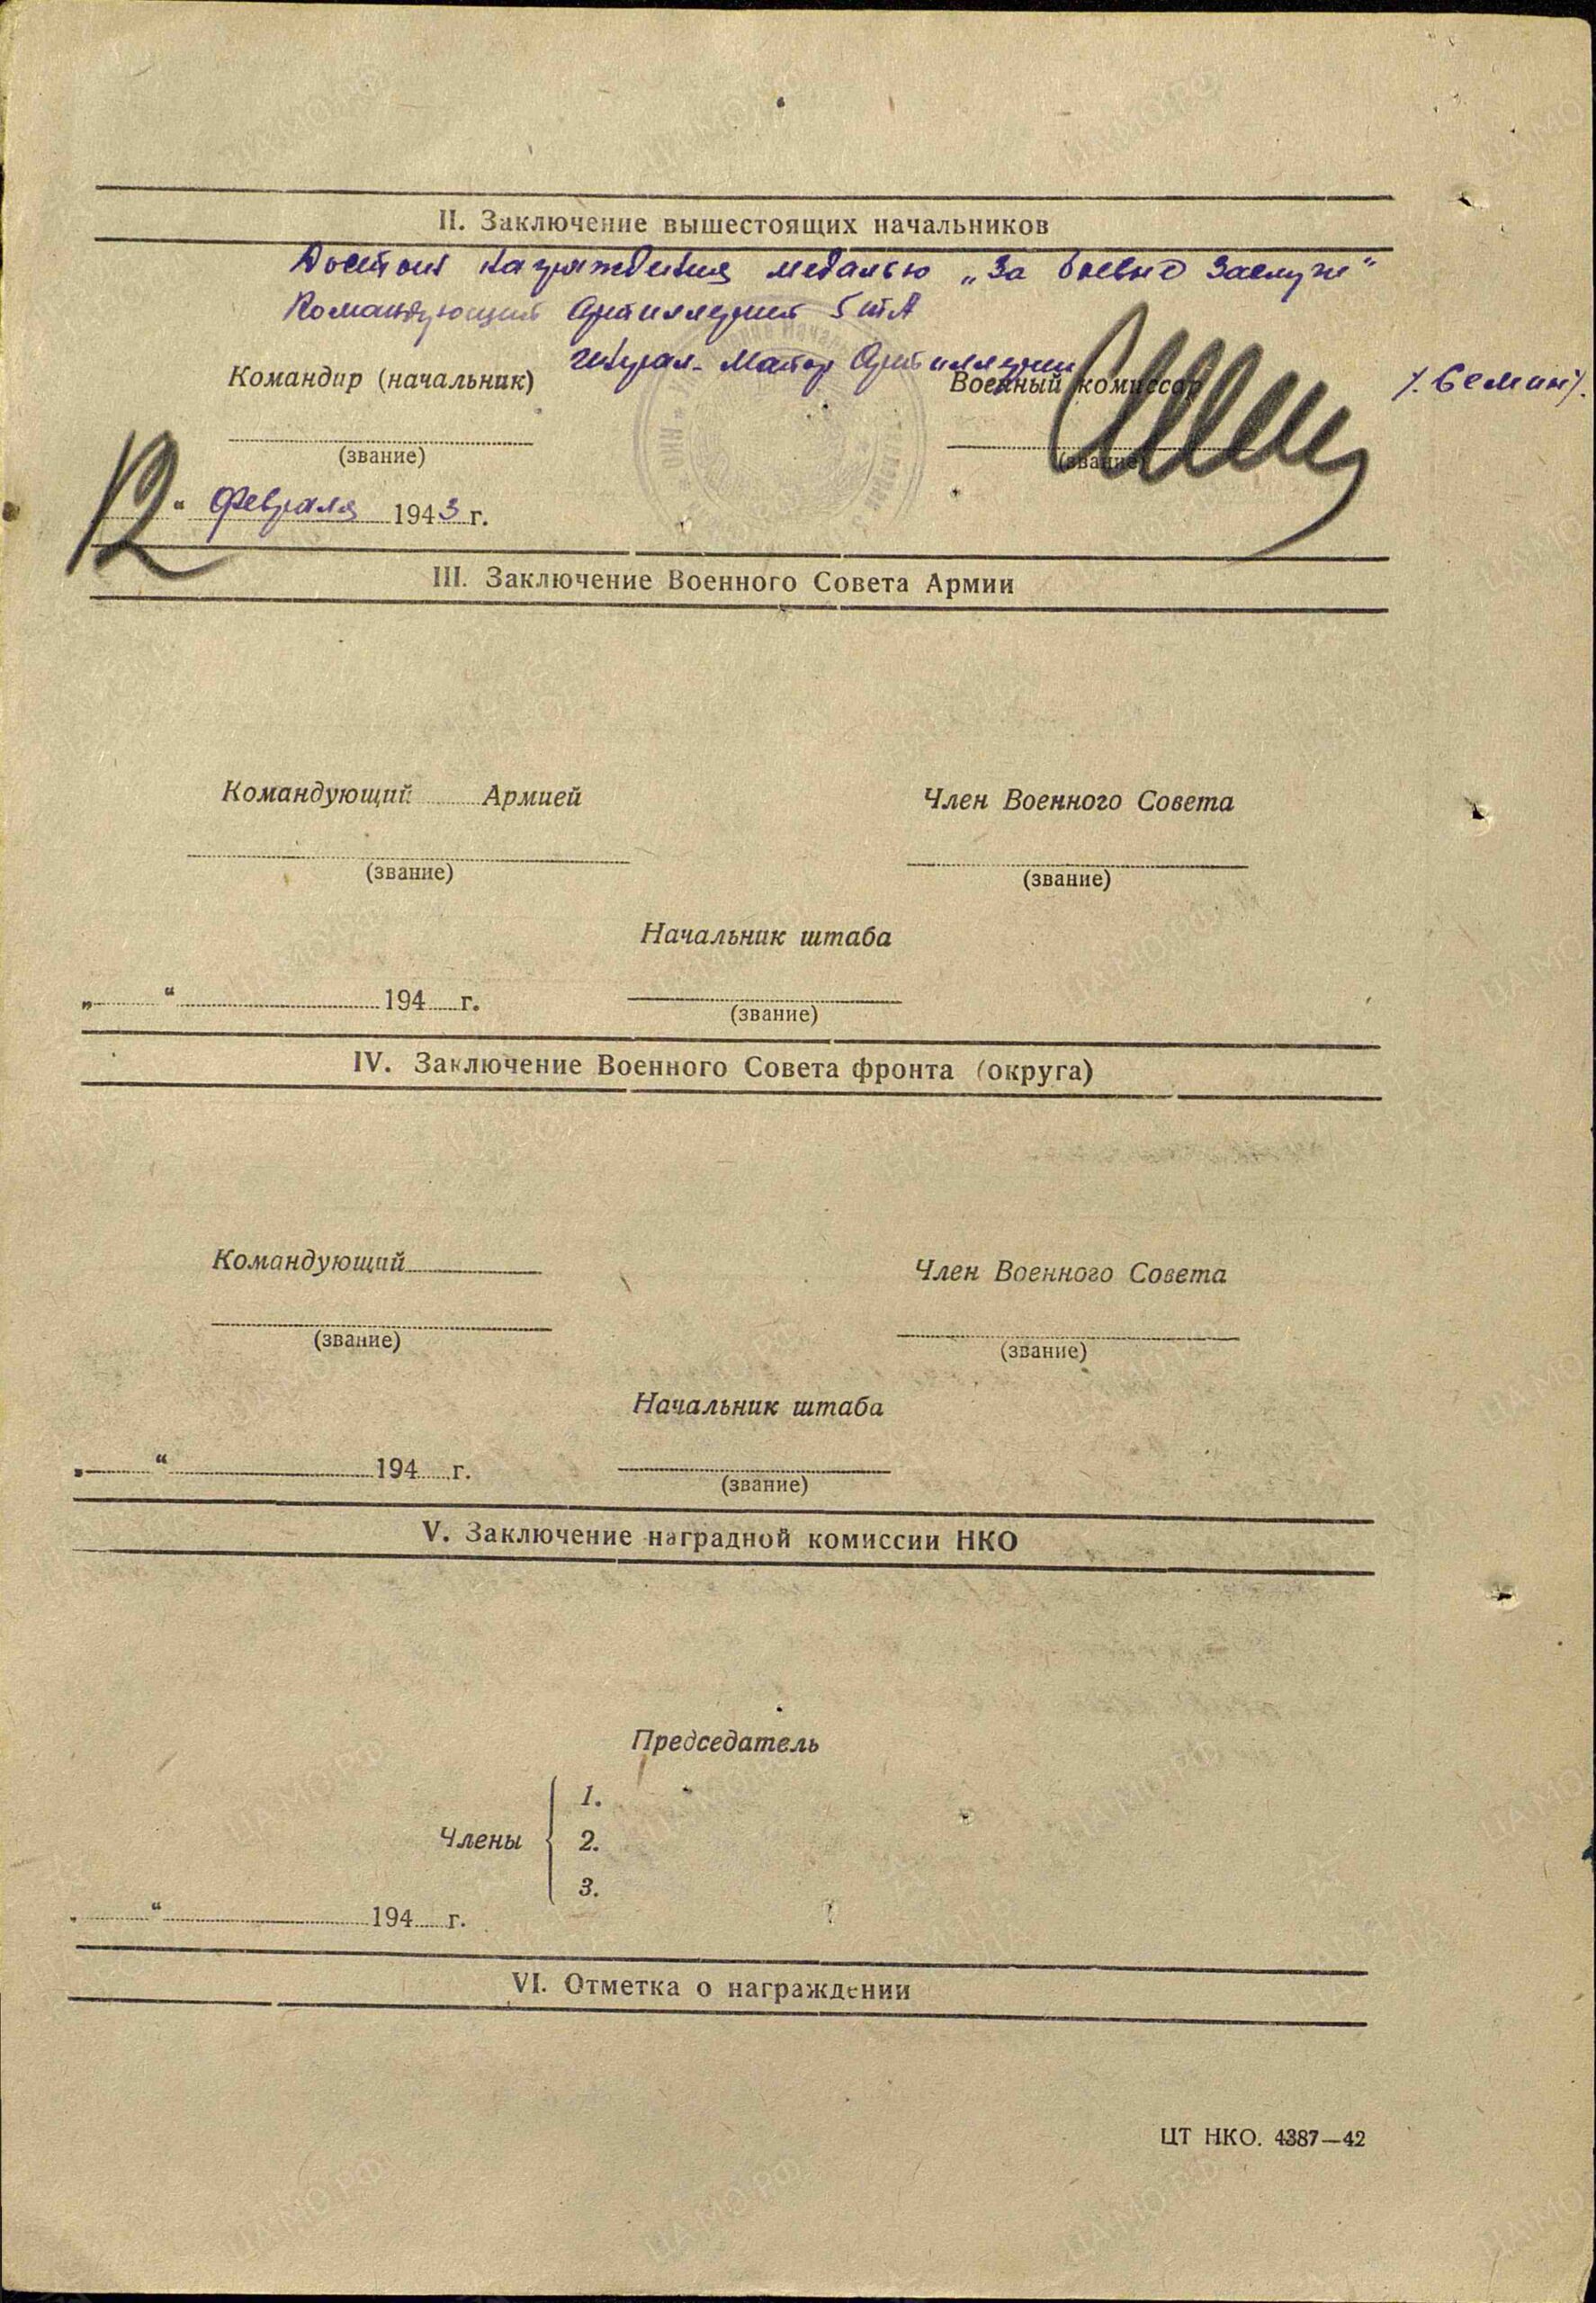 II. Заключение вышестоящих начальников
Достоин награждения медалью „За боевые заслуги"
Командующий Артиллерией 5 тА
генерал-майор Артиллерии
Командир (начальник) Военный комиссар /Семин/.
(звание) (звание)
12 " Февраля 1943 г.
III. Заключение Военного Совета Армии
Командующий Армией Член Военного Совета
(звание) (звание)
Начальник штаба
„ “ 194 г.
(звание)
IV. Заключение Военного Совета фронта (округа)
Командующий Член Военного Совета
(звание) (звание)
Начальник штаба
„ “ 194 г.
(звание)
V. Заключение наградной комиссии НКО
Председатель
1.
Члены 2.
3.
„ “ 194 г.
VI. Отметка о награждении
ЦТ НКО. 4387—42
ЦАМО РФ